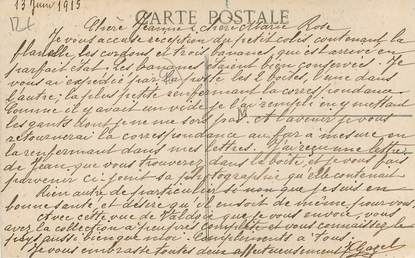 13 Juin 1915
CARTE POSTALE
Chère Jeanne, Chère Marie Rose
Je vous accuse réception du petit colis, contenant la
flanelle, les cordons, et trois bananes, qui est arrivé en
parfait état. Les bananes étaient bien conservées. Je
vous ai expédié par la poste les 2 boîtes, l'une dans
l'autre; la plus petite renfermant la correspondance.
Comme il y avait un vide je l'ai rempli en y mettant
les gants dont je ne me sers pas. A l'avenir je vous
retournerai la correspondance au fur à mesure en
la renfermant dans mes lettres. J'ai reçu une lettre
de Jean, que vous trouverez dans la boîte, et je vous fais
parvenir ci-joint sa photographie qu'elle contenait
Rien autre de particulier si non que je suis en
bonne santé, et désire qu'il en soit de même pour vous.
Avec cette vue de Valdoie que je vous envoie, vous
avez la collection à peu près complète et vous connaissez le
pays aussi bien que moi. Compliments à Tous.
Je vous embrasse toutes deux affectueusement